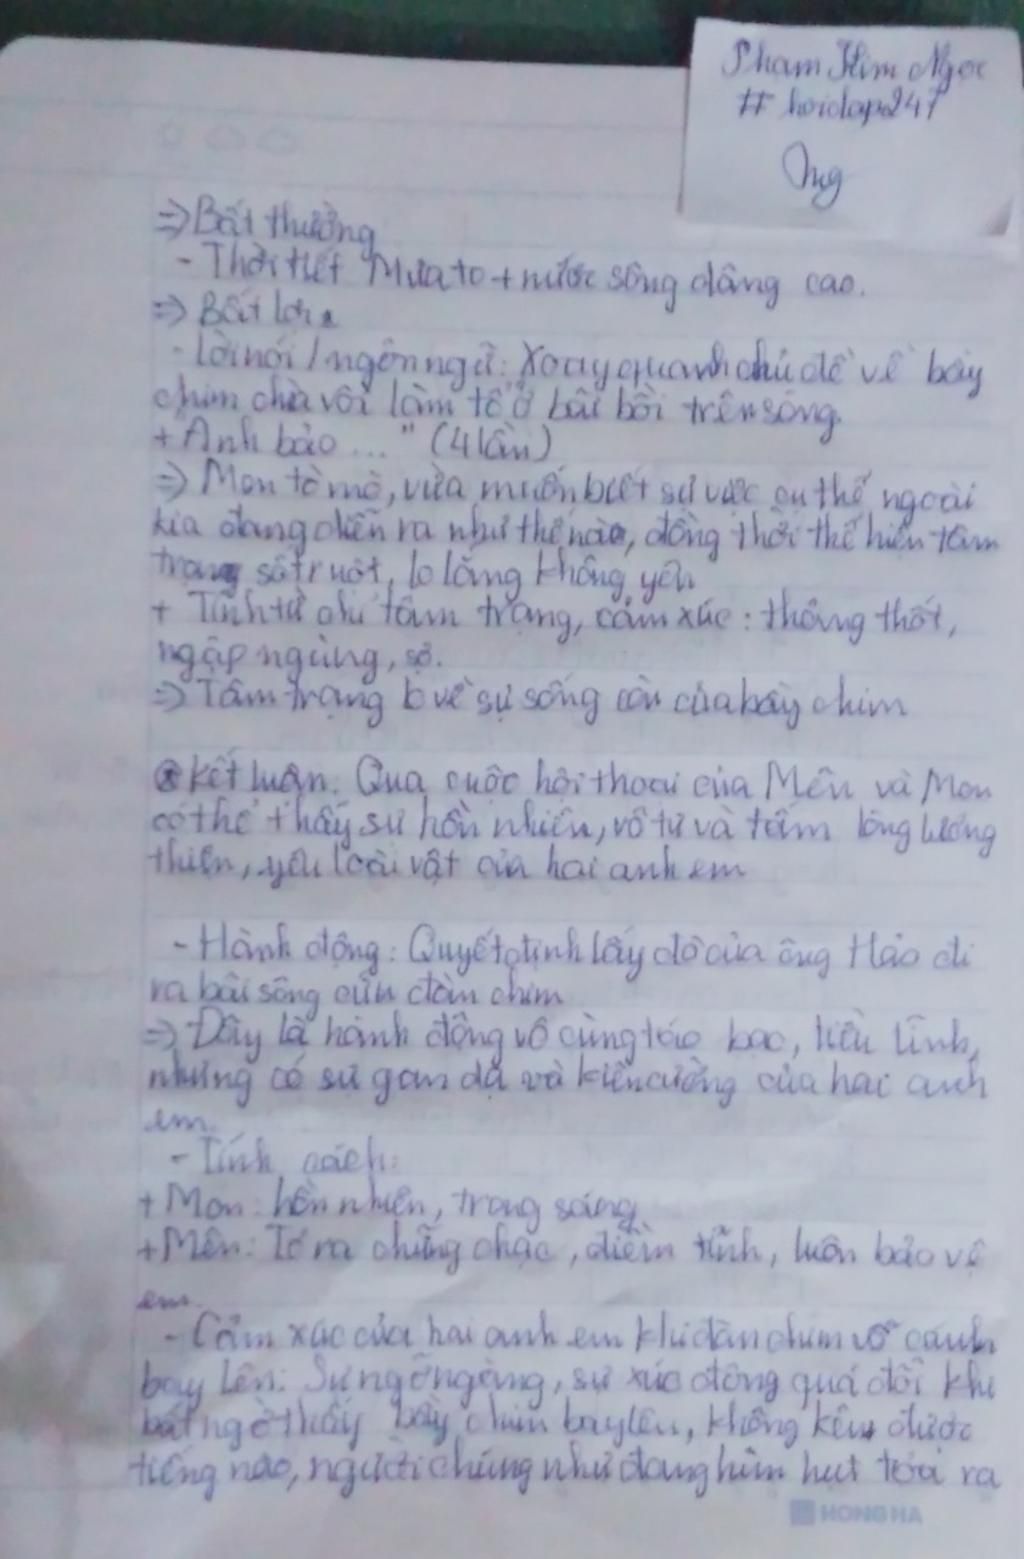 Phạm Kim Ngọc
# hoidap247
Ng
=> Bất thường
- Thời tiết Mưa to + nước sông dâng cao.
=> Bất lợi
- Lời nói / ngôn ngữ: Xoay quanh chủ đề về bầy
chim chìa vôi làm tổ ở bãi bồi trên sông.
+ Anh bảo ..." (4 lần)
=> Mon tò mò, vừa muốn biết sự việc cụ thể ngoài
kia đang diễn ra như thế nào, đồng thời thể hiện tâm
trạng sốt ruột, lo lắng không yên
+ Tính từ chỉ tâm trạng, cảm xúc: thảng thốt,
ngập ngừng, sợ.
=> Tâm trạng lo về sự sống còn của bầy chim
kết luận: Qua cuộc hội thoại của Mên và Mon
có thể thấy sự hồn nhiên, vô tư và tấm lòng lương
thiện, yêu loài vật của hai anh em
- Hành động: Quyết định lấy đò của ông Hảo đi
ra bãi sông cứu đàn chim
=> Đây là hành động vô cùng táo bạo, liều lĩnh,
nhưng có sự gan dạ và kiên cường của hai anh
em.
- Tính cách:
+ Mon: hồn nhiên, trong sáng
+ Mên: Tỏ ra chững chạc, điềm tĩnh, luôn bảo vệ
em.
- Cảm xúc của hai anh em khi đàn chim vỗ cánh
bay lên: Sự ngỡ ngàng, sự xúc động quá đỗi khi
bất ngờ thấy bầy chim bay lên, không kêu được
tiếng nào, người chúng như đang hừm hụt tỏa ra
HONG HA